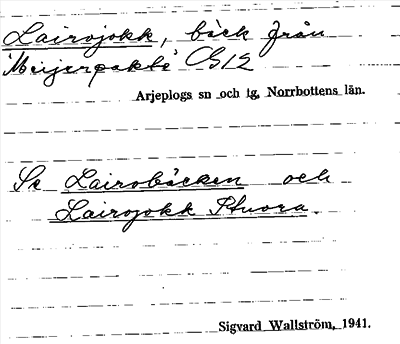 Lairojokk, bäck från
'Meijerpakte' C912
Arjeplogs sn och tg, Norrbottens län.
Se Lairobäcken och
Lairojokk Stuora.
Sigvard Wallström, 1941.